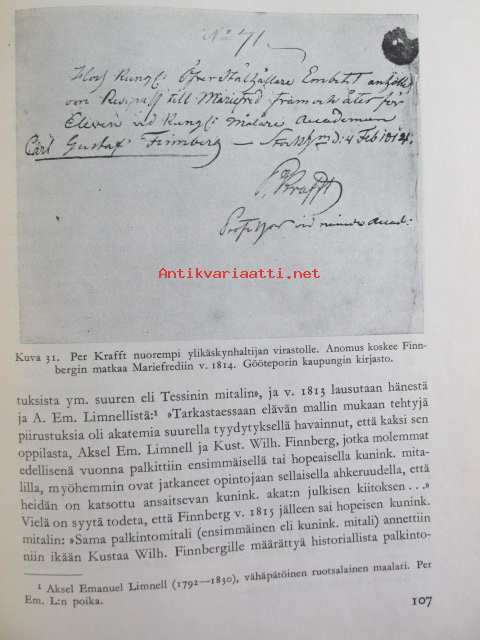 No 71.
Hos Kungl: Öfver Ståthållare Embetet anhålles
om Respass till Mariefred fram och åter för
Eleven vid Kungl: Målare Academien
Carl Gustaf Finnberg — Stockholm d: 4 Feb 1814.
P. Krafft
Professor vid nämde Acad:
Antikvariaatti.net
Kuva 31. Per Krafft nuorempi ylikäskynhaltijan virastolle. Anomus koskee Finn-
bergin matkaa Mariefrediin v. 1814. Gööteporin kaupungin kirjasto.
tuksista ym. suuren eli Tessinin mitalin», ja v. 1813 lausutaan hänestä
ja A. Em. Limnellistä:¹ »Tarkastaessaan elävän mallin mukaan tehtyjä
piirustuksia oli akatemia suurella tyydytyksellä havainnut, että kaksi sen
oppilasta, Aksel Em. Limnell ja Kust. Wilh. Finnberg, jotka molemmat
edellisenä vuonna palkittiin ensimmäisellä tai hopeisella kunink. mita-
lilla, myöhemmin ovat jatkaneet opintojaan sellaisella ahkeruudella, että
heidän on katsottu ansaitsevan kunink. akat:n julkisen kiitoksen...»
Vielä on syytä todeta, että Finnberg v. 1815 jälleen sai hopeisen kunink.
mitalin: »Sama palkintomitali (ensimmäinen eli kunink. mitali) annettiin
niin ikään Kustaa Wilh. Finnbergille määrättyä historiallista palkinto-
¹ Aksel Emanuel Limnell (1792—1830), vähäpätöinen ruotsalainen maalari. Per
Em. L:n poika.
107